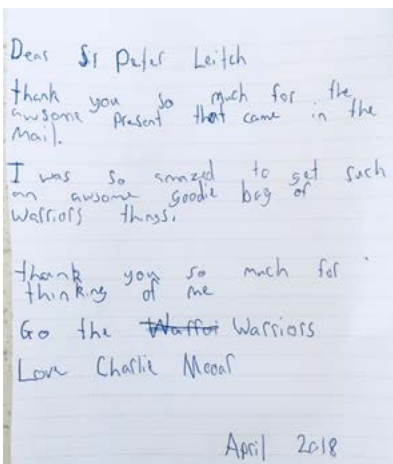 Dear Sir Peter Leitch
thank you so much for the
awsome present that came in the
Mail.
I was so amazed to get such
an awsome goodie bag of
Warriors things.
thank you so much for
thinking of me
Go the Warriors
Love Charlie
April 2018